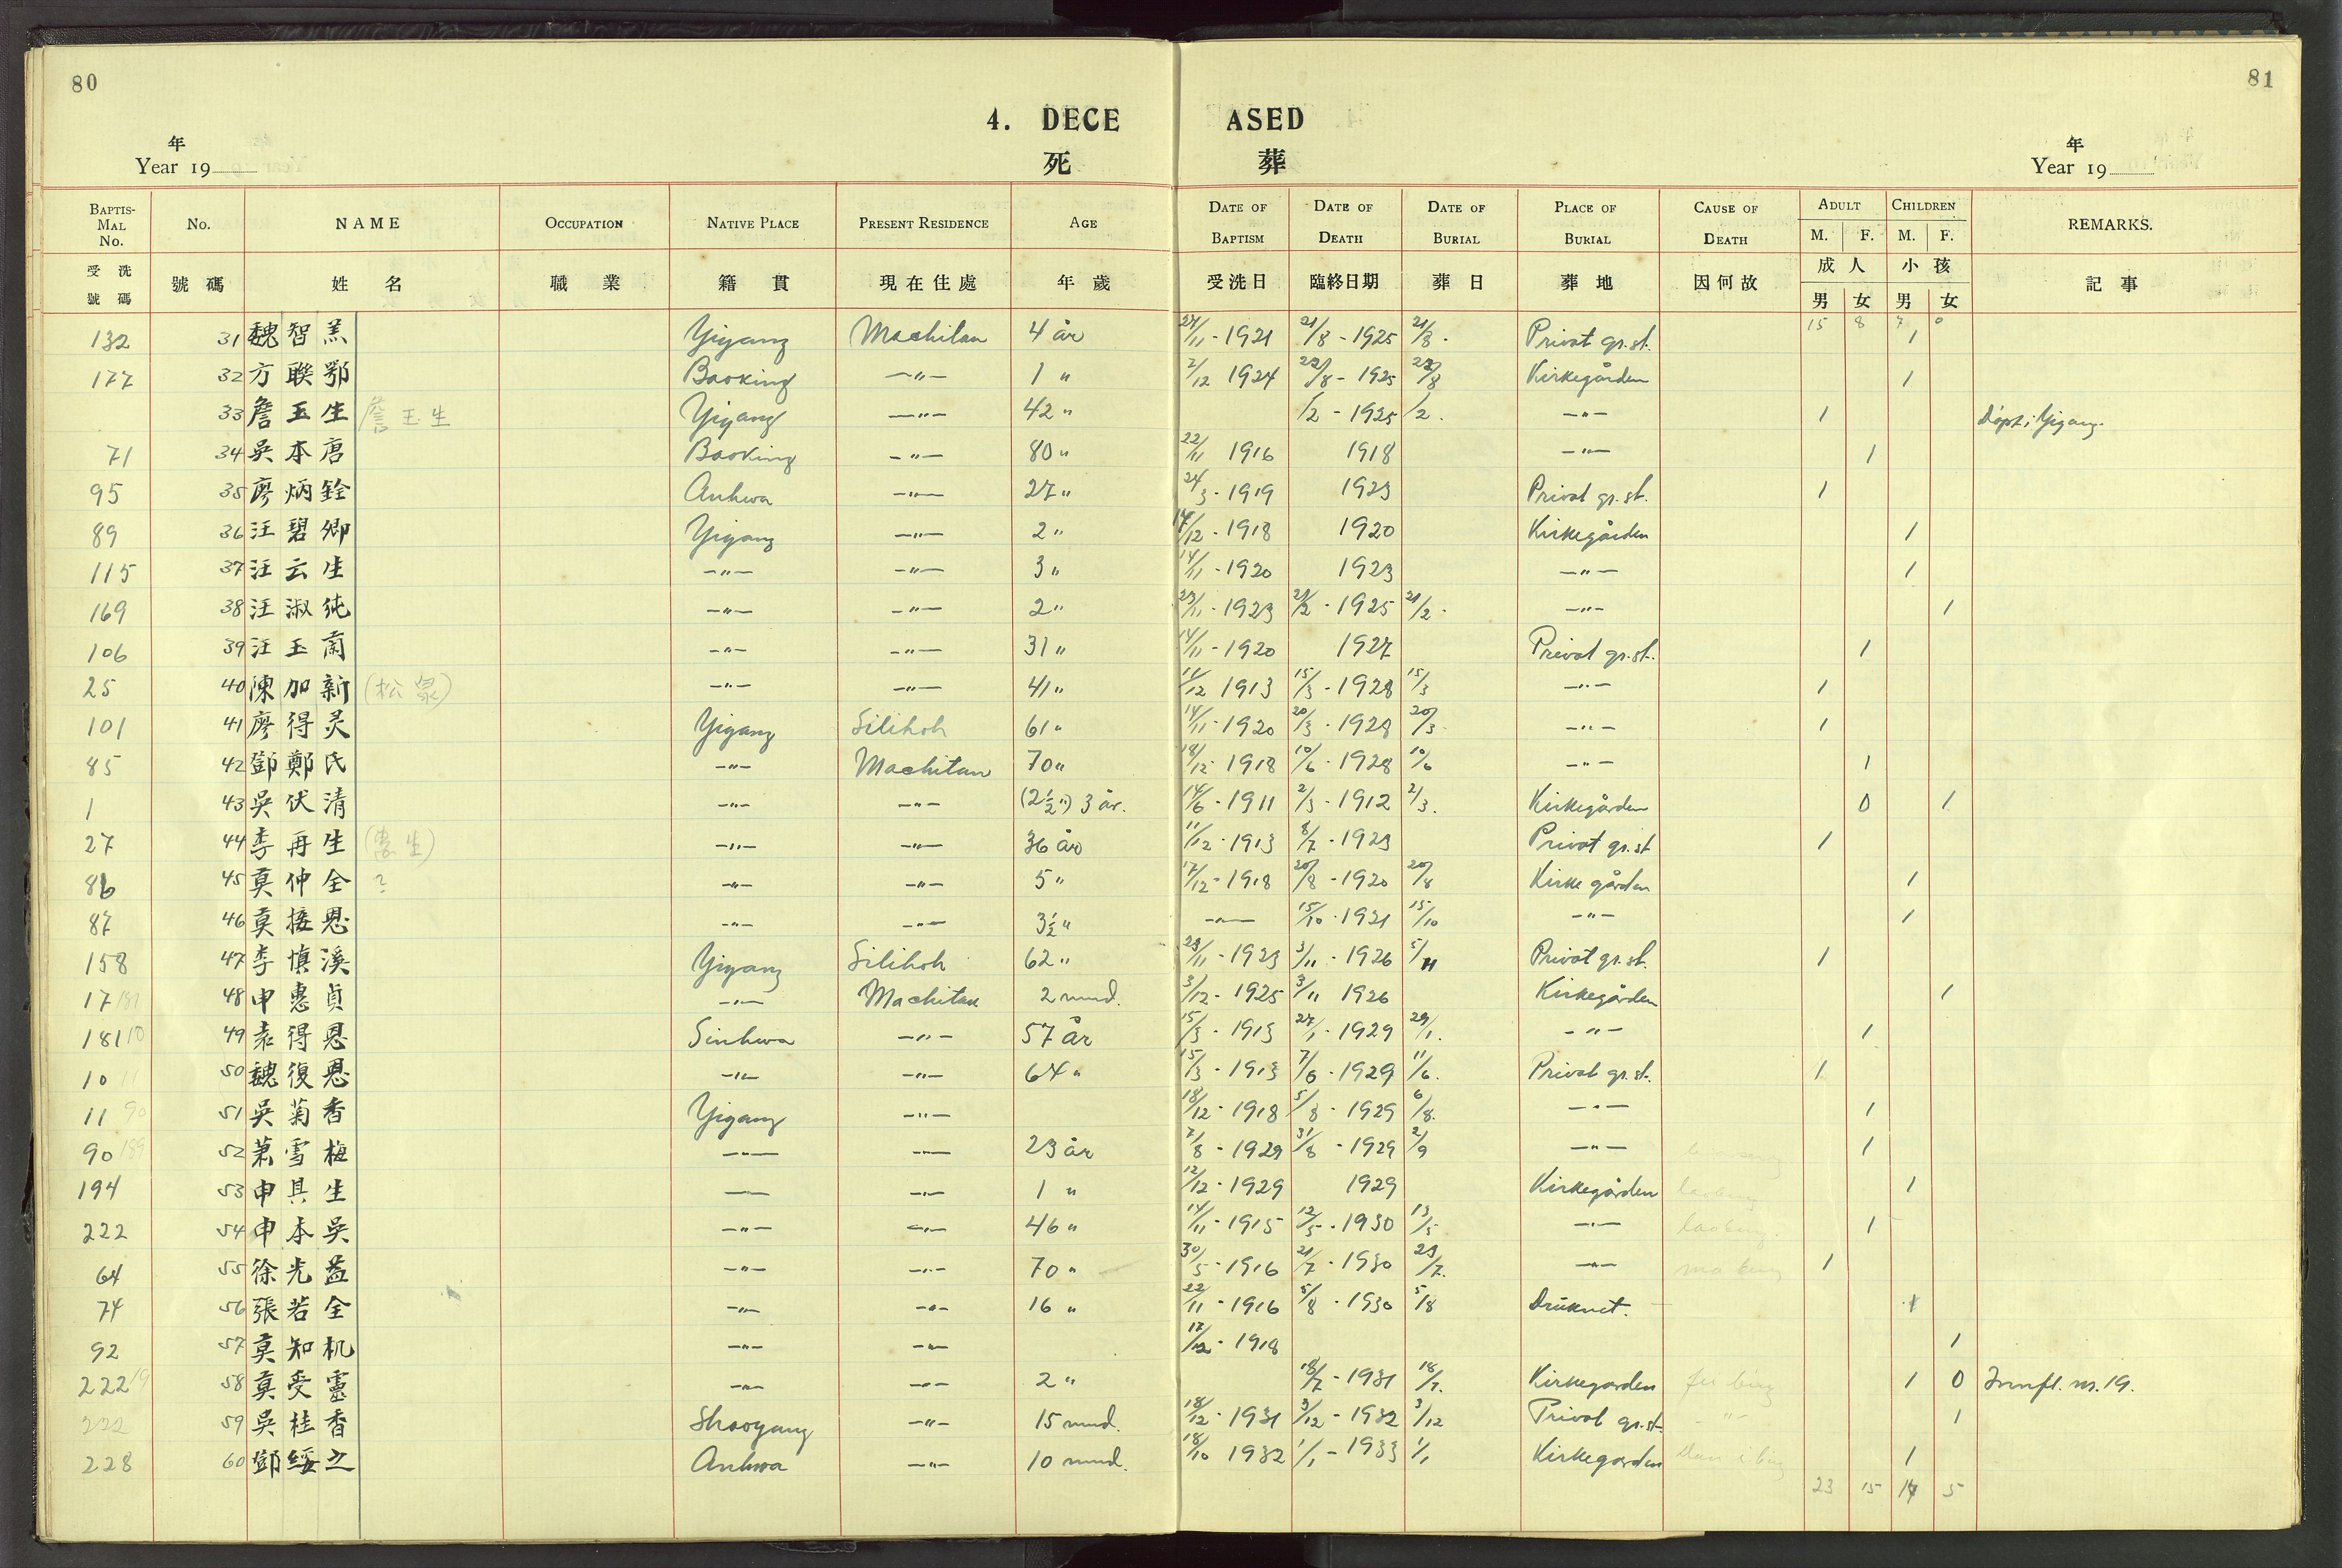 80
81
4. DECEASED
死 葬
年
Year 19
年
Year 19
BAPTISMAL No. No. NAME OCCUPATION NATIVE PLACE PRESENT RESIDENCE AGE DATE OF BAPTISM DATE OF DEATH DATE OF BURIAL PLACE OF BURIAL CAUSE OF DEATH ADULT M. F. CHILDREN M. F. REMARKS.
受洗號碼 號碼 姓名 職業 籍貫 現在住處 年歲 受洗日 臨終日期 葬日 葬地 因何故 成人 男 女 小孩 男 女 記事
15 8 7 0
132 31 魏智 Yiyang Machitan 4 år 24/11 - 1921 21/8 - 1925 21/8 - Privat gr.st. 1
177 32 方聯鄂 Baoking -"- 1 " 2/12 1924 22/8 - 1925 22/8 Kirkegården 1
33 詹玉生 詹玉生 Yiyang -"- 42 " 1/2 - 1925 1/2. -"- 1 Döpt i Yiyang.
71 34 吳本唐 Baoking -"- 80 " 22/11 1916 1918 -"- 1
95 35 廖炳銓 Anhwa -"- 27 " 24/3 - 1919 1923 Privat gr.st. 1
89 36 汪碧卿 Yiyang -"- 2 " 17/12 - 1918 1920 Kirkegården 1
115 37 汪云生 -"- -"- 3 " 14/11 - 1920 1923 -"- 1
169 38 汪淑純 -"- -"- 2 " 23/11 - 1923 21/2 - 1925 21/2 - -"- 1
106 39 汪玉蘭 -"- -"- 31 " 14/11 - 1920 1927 Privat gr.st. 1
25 40 陳加新 (松泉) -"- -"- 41 " 11/12 1913 15/3 - 1928 15/3 -"- 1
101 41 廖得灵 Yiyang Silihoh 61 " 14/11 - 1920 20/3 - 1928 20/3 - -"- 1
85 42 鄧鄭氏 -"- Machitan 70 " 18/12 - 1918 10/6 - 1928 10/6 -"- 1
1 43 吳伏清 -"- -"- (2½ ") 3 år. 14/6 - 1911 2/3 - 1912 2/3. Kirkegården 0 1
27 44 李再生 -"- -"- 36 år 11/12 - 1913 8/7 - 1923 Privat gr.st 1
86 45 莫仲全 ? -"- -"- 5 " 17/12 - 1918 20/8 - 1920 20/8 Kirkegården 1
87 46 莫接恩 -"- -"- 3½ " -"- 15/10 - 1921 15/10 -"- 1
158 47 李慎溪 Yiyang Silihoh 62 " 23/11 - 1923 3/11 - 1926 5/11 Privat gr.st. 1
17 181 48 申惠貞 -"- Machitan 2 mnd. 3/12 - 1925 3/11 1926 Kirkegården 1
181 10 49 袁得恩 Sinhwa -"- 57 år 15/3 - 1913 27/1 - 1929 29/1. -"- 1
10 11 50 魏復恩 -"- -"- 64 " 15/3 - 1913 7/6 - 1929 11/6. Privat gr.st. 1
11 90 51 吳菊香 Yiyang -"- 18/12 - 1918 5/8 - 1929 6/8. -"- 1
90 189 52 蕭雪梅 -"- -"- 23 år 7/8 - 1929 31/8 - 1929 2/9 -"- 1
194 53 申具生 -"- -"- 1 " 12/12 - 1929 1929 Kirkegården laobing 1
222 54 申本吳 -"- -"- 46 " 14/11 - 1915 12/5 - 1930 13/5 -"- laobing. 1
64 55 徐光益 -"- -"- 70 " 30/5 - 1916 21/7 - 1930 23/7. -"- ma bing 1
74 56 張若全 -"- -"- 16 " 22/11 - 1916 5/8 - 1930 5/8 Druknet. 1
92 57 莫知机 -"- -"- 17/12 - 1918 1
222 19 58 莫受靈 -"- -"- 2 " 18/7 - 1931 18/7. Kirkegården fei bing 1 0 Innfl. nr. 19.
222 59 吳桂香 Shaoyang -"- 15 mnd. 18/12 - 1931 3/12 - 1932 3/12 Privat gr.st. -"- 1
228 60 鄧綏之 Anhwa -"- 10 mnd. 18/10 1932 1/1 - 1933 1/1 Kirkegården 1
23 15 14 5